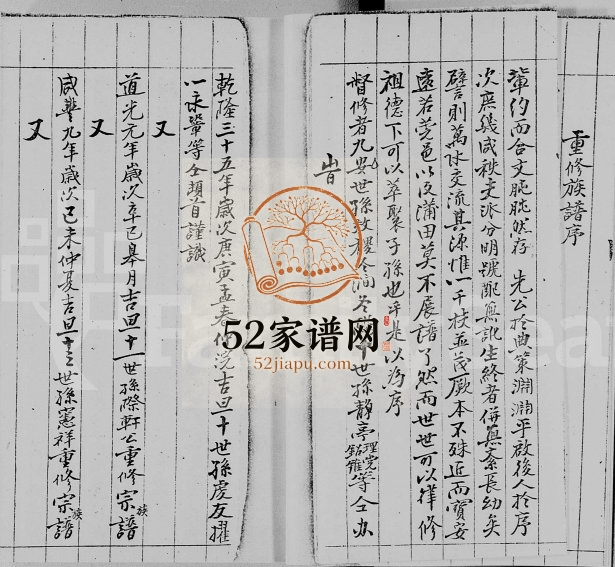 重修族譜序
輩約而合文肫肫然存 先公於典策淵淵乎啟後人於序
次庶幾咸秩支派分明號配無訛生終者併無紊長幼矣
譬則萬水交流其源惟一千枝並茂厥本不殊近而寶安
遠若莞邑以及蒲田莫不展譜了然而世世可以肇修
祖德下可以萃聚子孫也于是以為序
督修者九 世孫 世孫靜亭 等仝办
旹
乾隆三十五年歲次庚寅孟春 浣吉旦十世孫處友擢
一永 等仝頓首謹識
又
道光元年歲次辛巳皋月吉旦十一世孫際軒公重修宗族譜
又
咸豐九年歲次己未仲夏吉旦十三世孫憲祥重修宗族譜
又
52家谱网
52jiapu.com